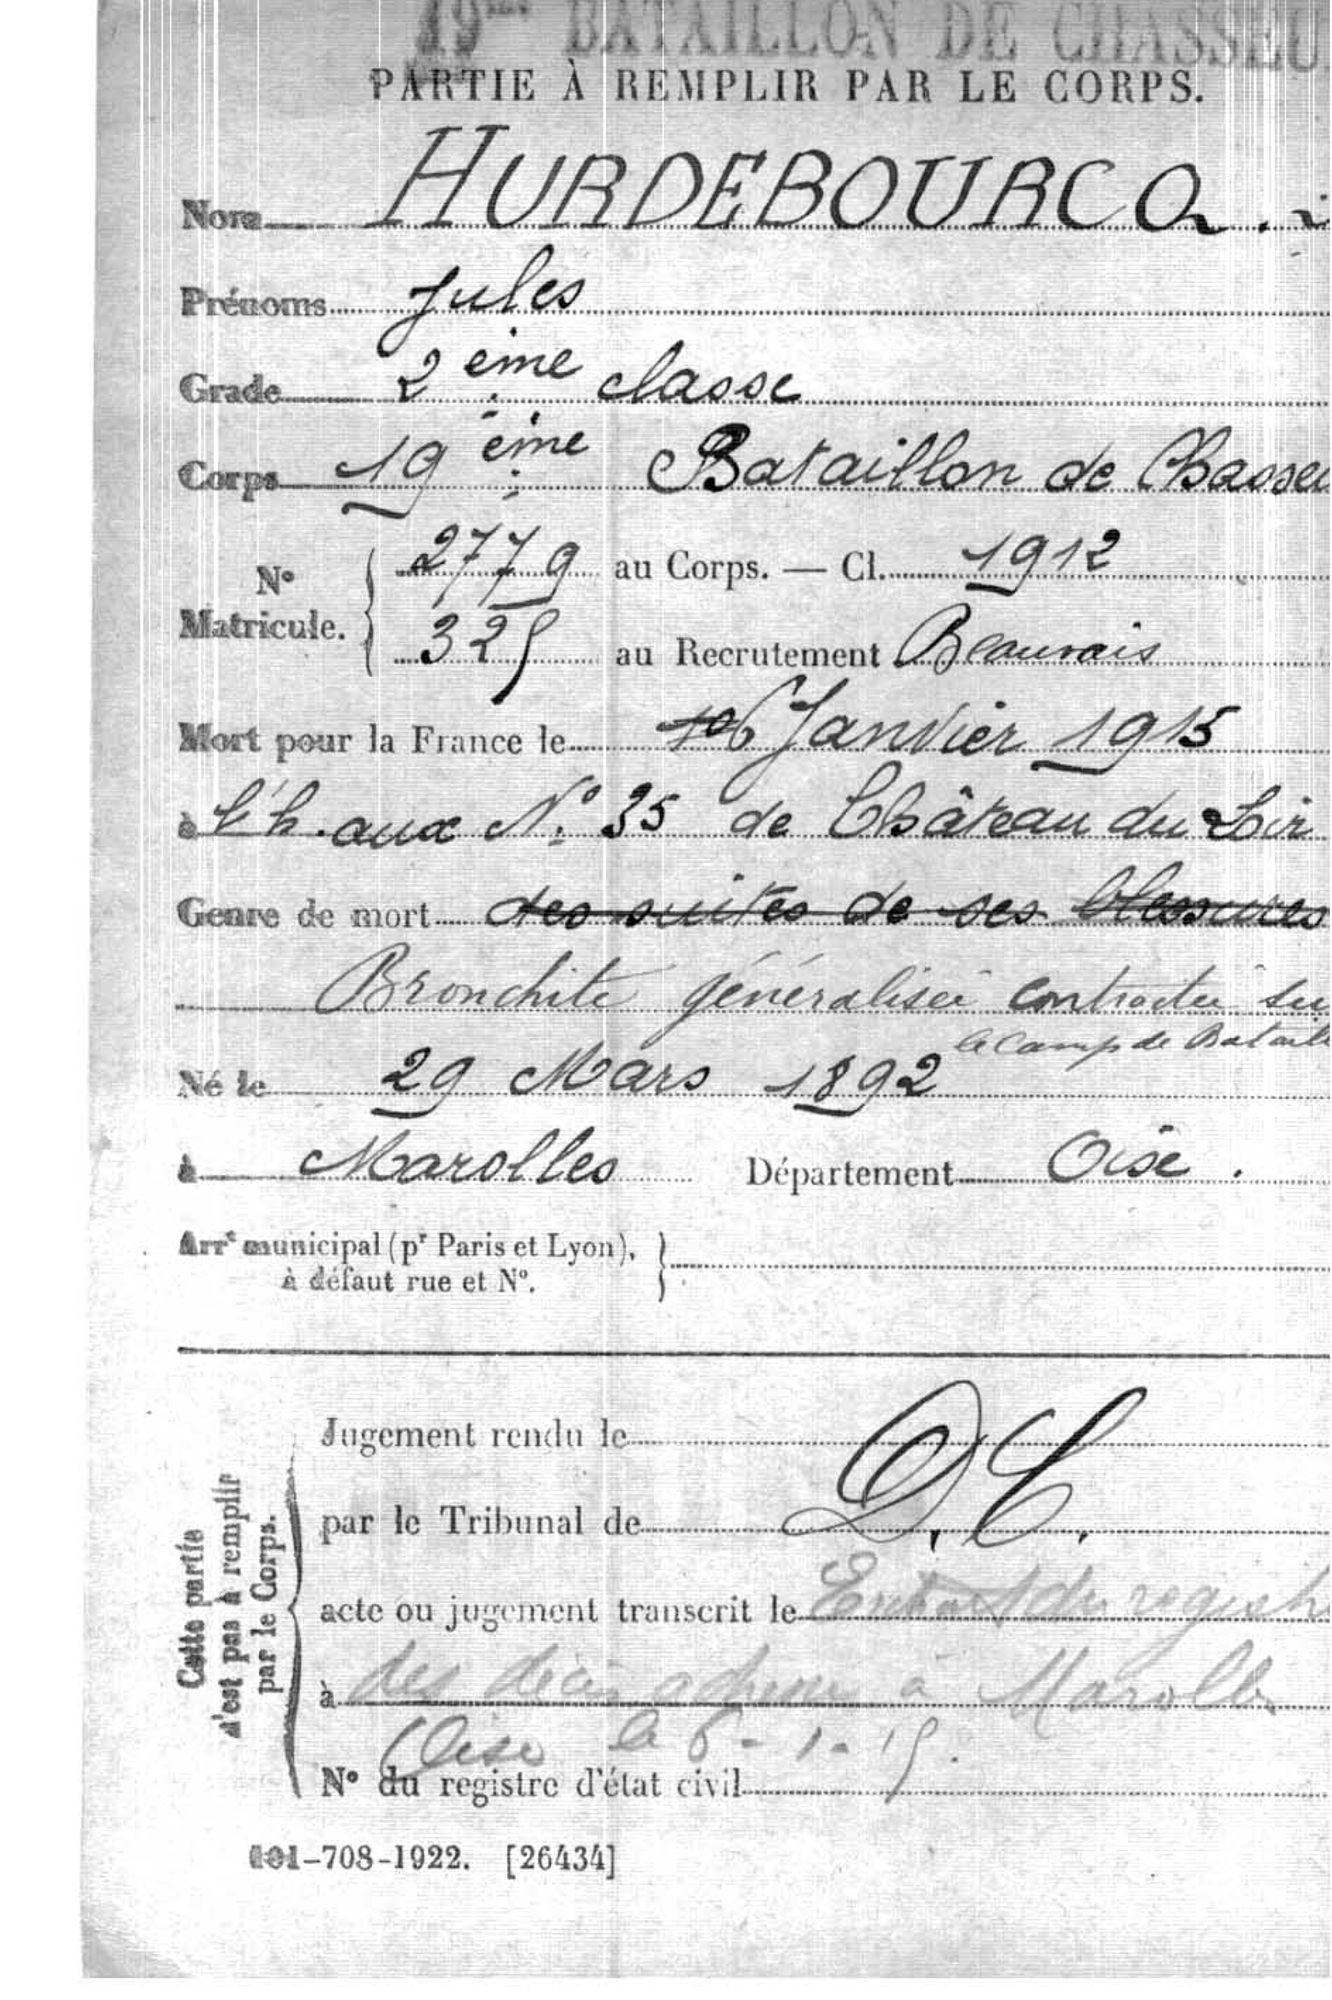 19me BATAILLON DE CHASSEU
PARTIE À REMPLIR PAR LE CORPS.
Nom HURDEBOURCQ.
Prénoms Jules
Grade 2ème classe
Corps 19ème Bataillon de Chasseu
N° Matricule. 2779 au Corps. — Cl. 1912
325 au Recrutement Beauvais
Mort pour la France le 6 Janvier 1915
à l'h. aux N° 35 de Château du Loir
Genre de mort des suites de ses blessures
Bronchite généralisée contractée su
le camp de Bataill
Né le 29 Mars 1892
à Marolles Département Oise.
Arrt municipal (pr Paris et Lyon),
à défaut rue et N°.
Cette partie
n'est pas à remplir
par le Corps.
Jugement rendu le
par le Tribunal de D.C.
acte ou jugement transcrit le Extrait du registr
à des décès à Marolles
Oise le 6-1-15.
N° du registre d'état civil
101-708-1922. [26434]